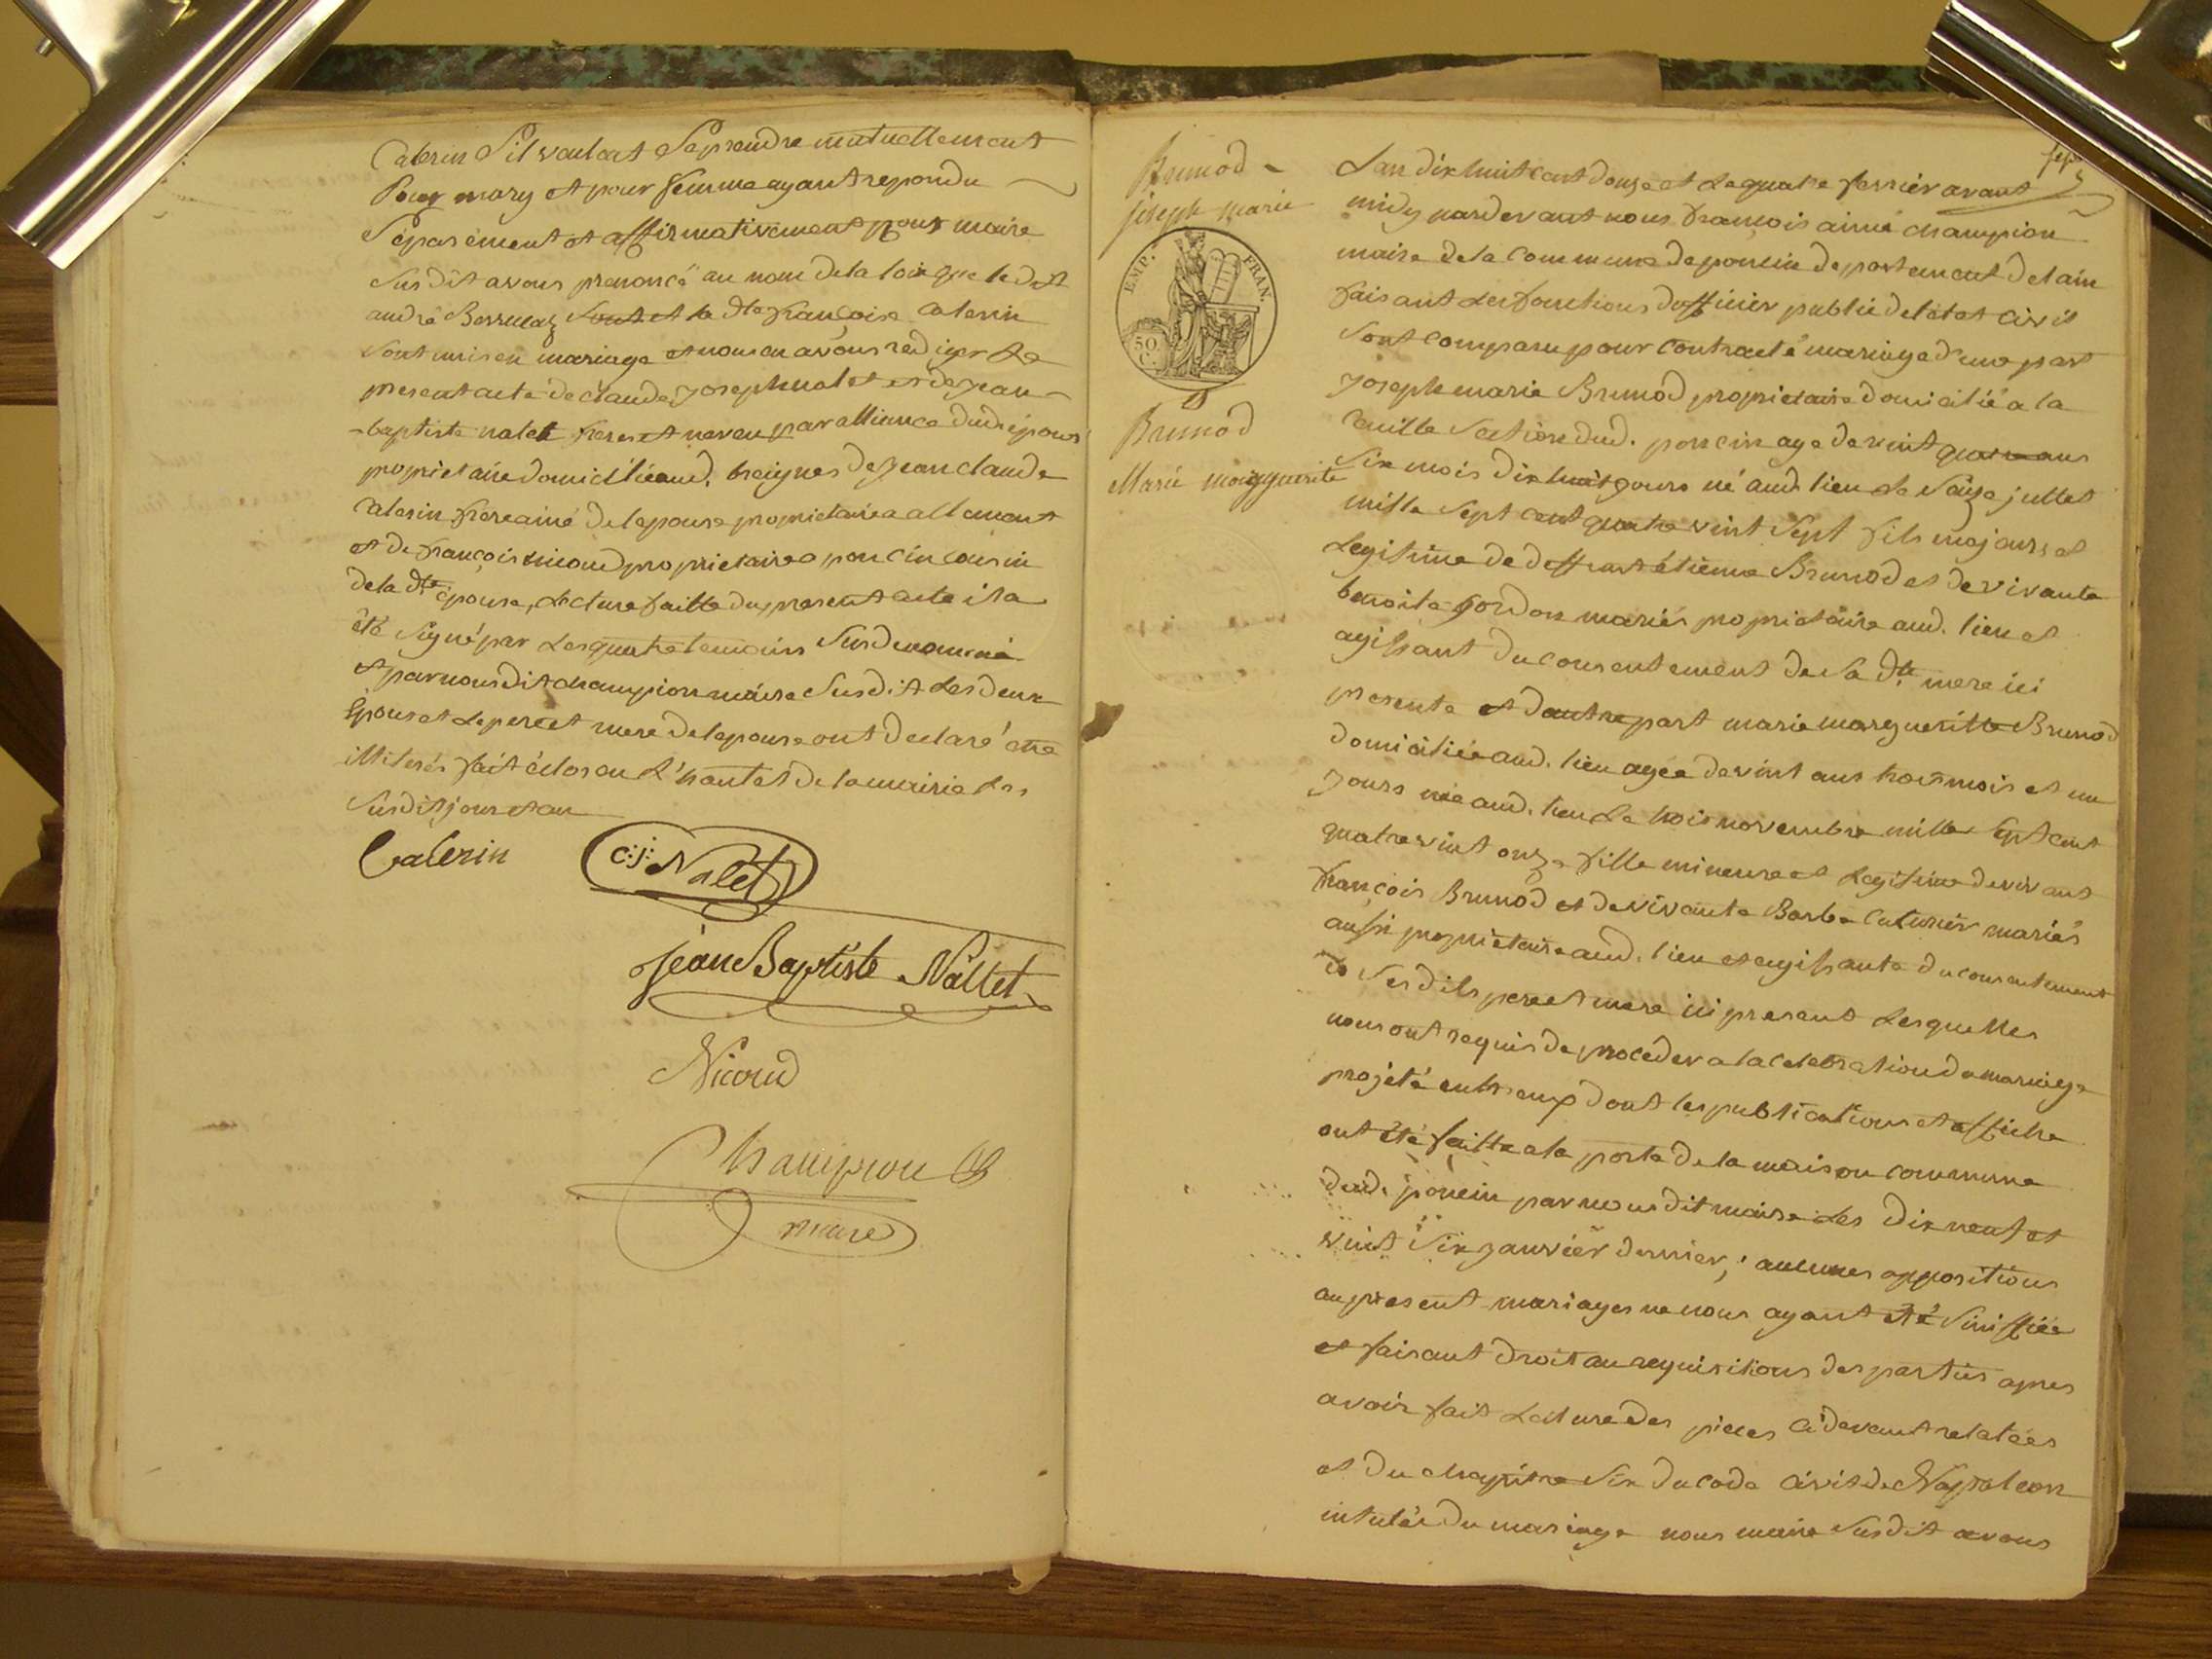 Calerin S'il vouloit Se prendre mutuellement
Pour mary et pour femme ayant repondu
Séparément et affirmativement nous maire
Susdit avons prononcé au nom de la loix que ledit
andré et la dte françoise Calerin
Sont unis en mariage et nous en avons rediger le
present acte de claude joseph nalet et de jean
-baptiste nalet freres et neveu par alliance dud. epoux
proprietaire domicilié aud. de jean claude
Calerin frere ainé de lepouse proprietaire a allement
et de françois nicoud proprietaire a poncin cousin
de la dte épouse, Lecture faitte du present acte il a
été Signé par Les quatre temoins Susdenommé
et par nous dit champion maire Susdit Les deux
Epoux et Le pere et mere de lepouse ont declaré etre
illiterés fait et clos en L'hautel de la mairie Les
Susdit jour et an
Calerin
C: j: Nalet
jean Baptiste Nallet
Nicoud
Champion
maire
sept
Brunod
joseph marie
EMP. FRAN.
50 C.
Brunod
Marie margguerite
Lan dix huit cent douze et Le quatre fevrier avant
midy pardevant nous françois aimé champion
maire de la Commune de poncin departement de lain
faisant Les fonctions dofficier public de létat civil
Sont comparu pour contracté mariage d'une part
joseph marie Brunod proprietaire domicilié a la
Section dud. poncin age de vint quatre ans
Six mois dix huit jours né aud. lieu Le Saize jullet
mille Sept cent quatre vint Sept fils majeurs et
Legitime de deffunt étienne Brunod et de vivante
benoite gordon mariés proprietaire aud. lieu et
agissant du consentement de Sa dte mere ici
presente et dautre part marie margueritte Brunod
domiciliée aud. lieu agée de vint ans trois mois et un
jours née aud. lieu Le trois novembre mille Sept cent
quatre vint onze fille mineure et Legitime de vivant
françois Brunod et de vivante Barbe mariés
aussi proprietaire aud. lieu et agissante du consentement
de Ses dits pere et mere ici present Lesquelles
nous ont requis de proceder a la celebration de mariage
projeté entre eux dont les publications et affiche
ont été faitte a la porte de la maison commune
dud. poncin par nous dit maire Les dix neuf et
vint Six janvier dernier; aucunes oppositions
au present mariages ne nous ayant été Siniffiée
et faisant droit au requisitions des parties apres
avoir fait Lecture des pieces ci devant relatées
et du chapitre Six du code civil de Napoleon
intulée du mariage nous maire Susdit avons